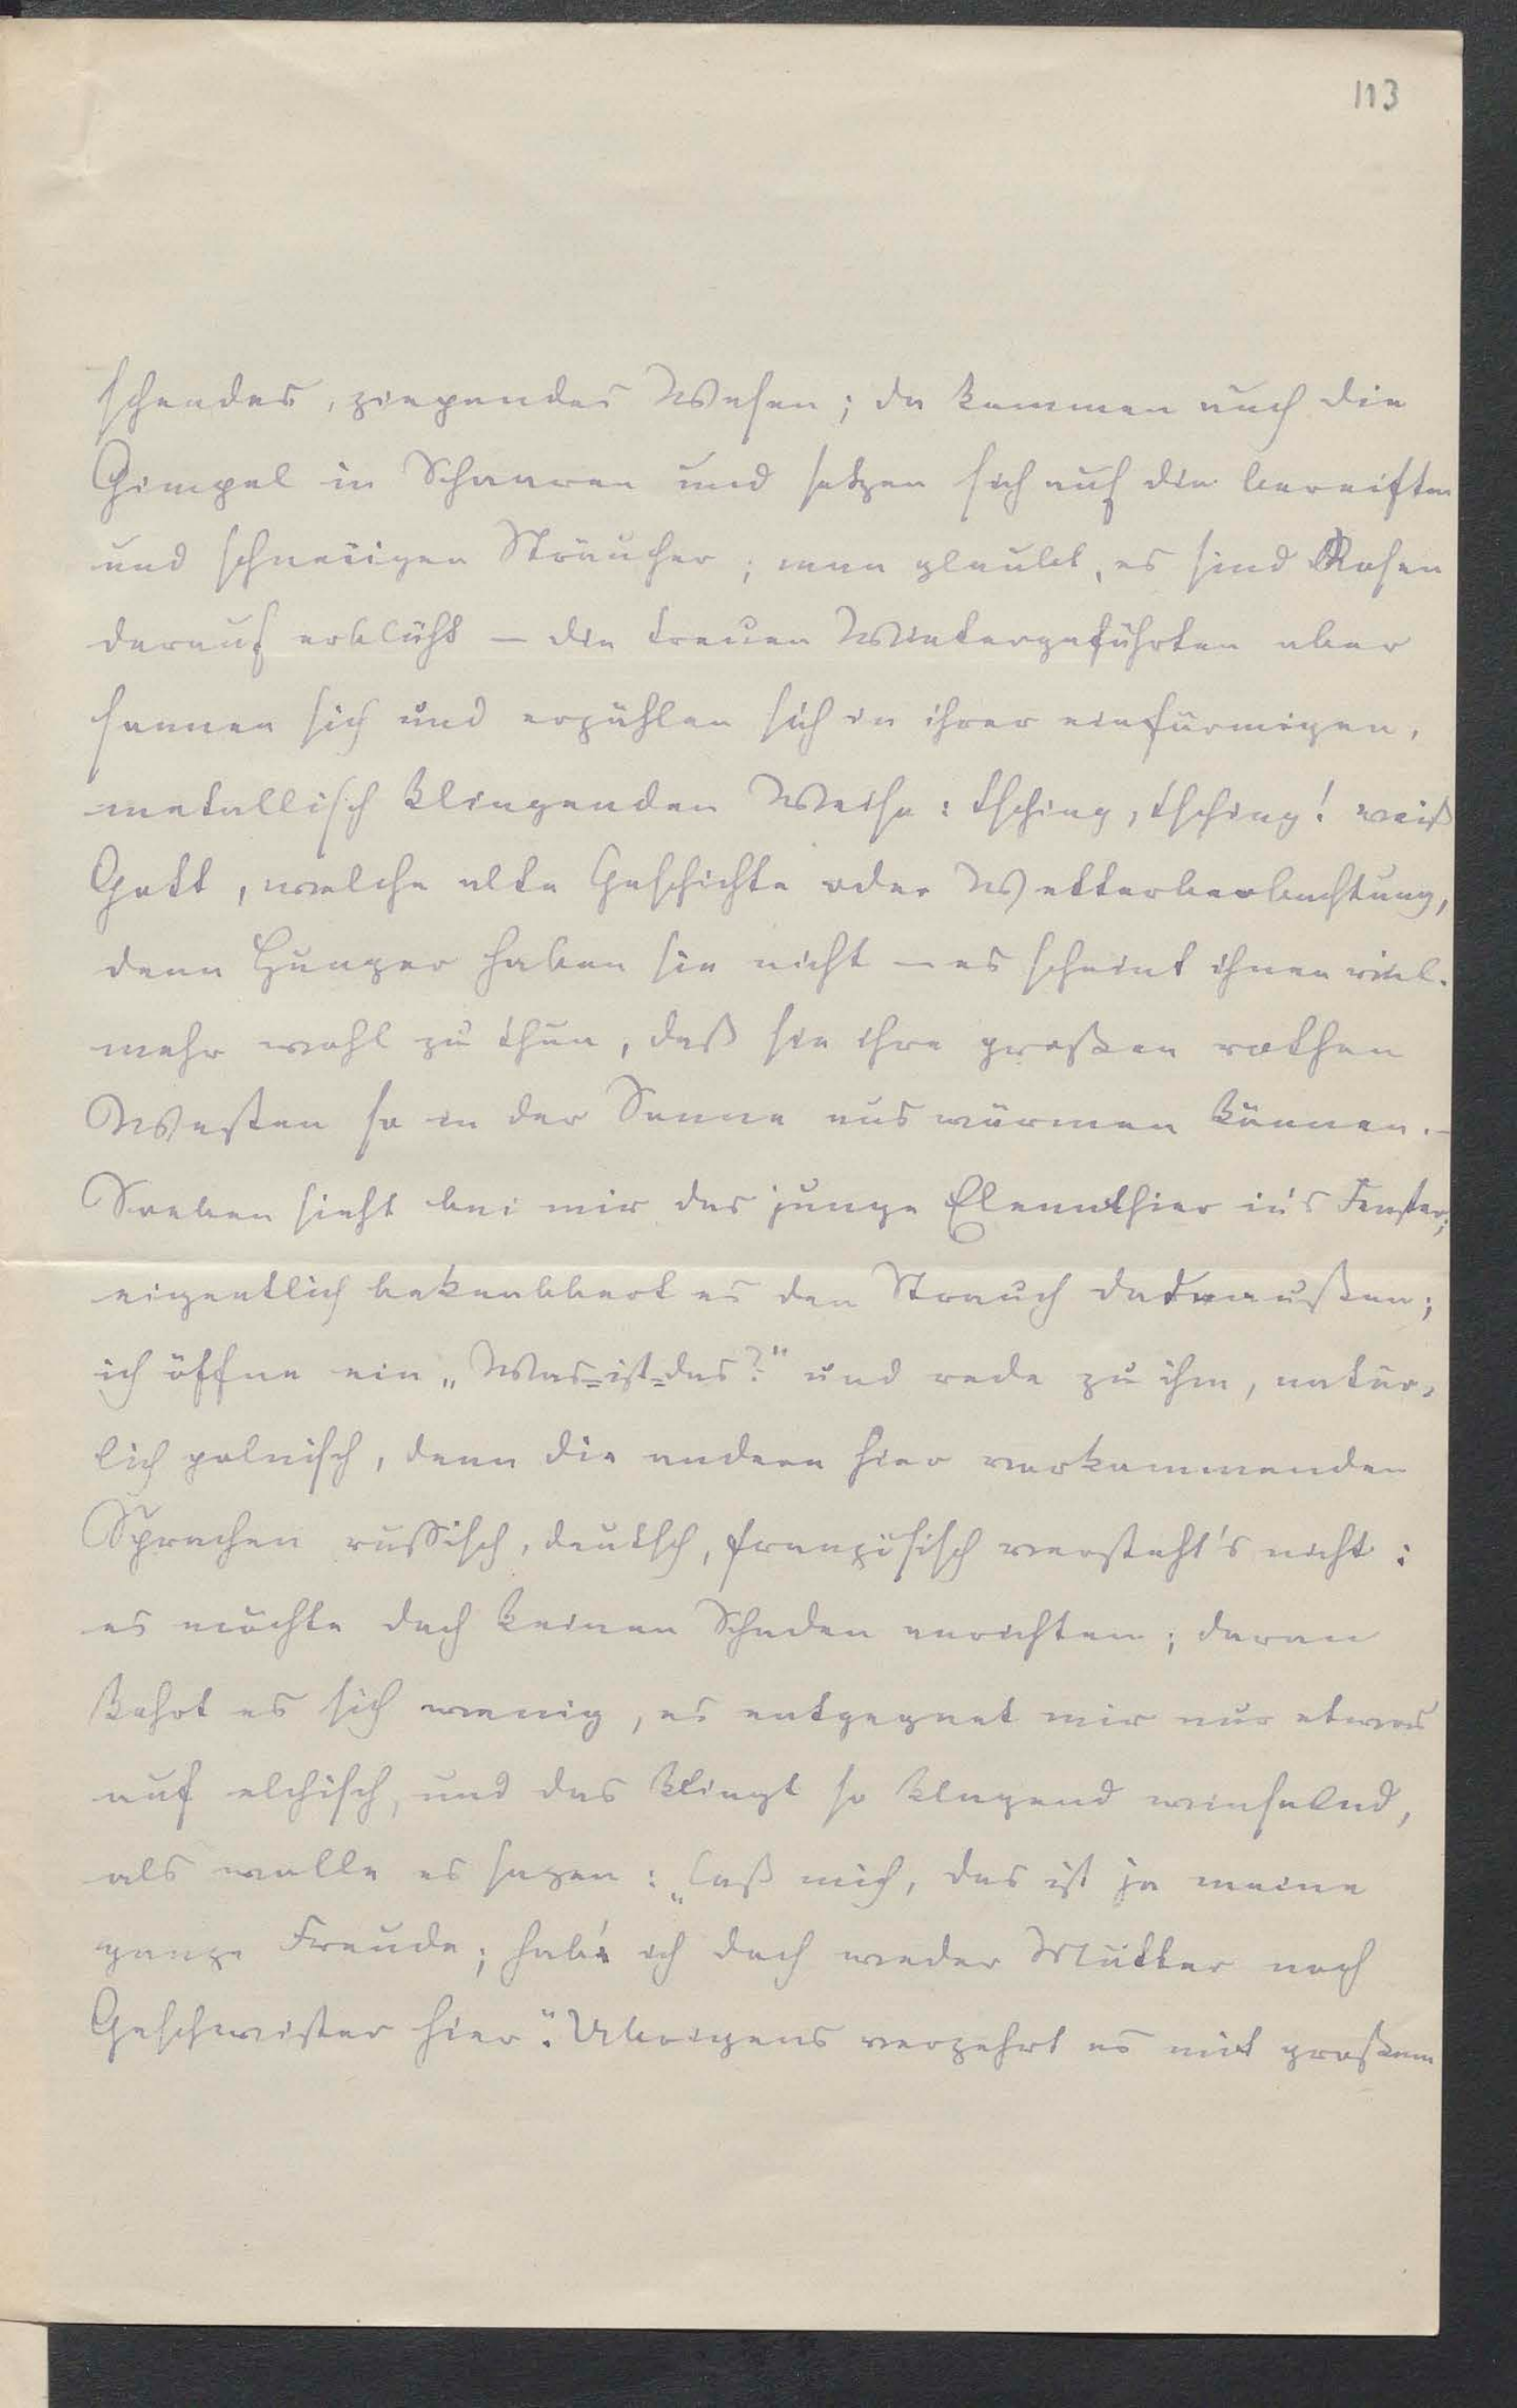 113
schendes, ziependes Wesen; da kommen auch die
Gimpel in Schaaren und setzen sich auf die bereiften
und schneeigen Sträucher; man glaubt, es sind Rosen
darauf erblüht – die treuen Wintergefährten aber
sonnen sich und erzählen sich in ihrer einförmigen,
metallisch klingenden Weise: tsching, tsching! weiß
Gott, welche alte Geschichte oder Wetterbeobachtung,
denn Hunger haben sie nicht – es scheint ihnen viel-
mehr wohl zu thun, daß sie ihre großen rothen
Westen so in der Sonne auswärmen können. –
Soeben sieht bei mir das junge Elennthier in's Fenster;
eigentlich beknabbert es den Strauch da draußen;
ich öffne ein „Was=ist=das?" und rede zu ihm, natür-
lich polnisch, denn die andern hier vorkommenden
Sprachen russisch, deutsch, französisch versteht's nicht:
es möchte doch keinen Schaden anrichten; daran
kehrt es sich wenig, es entgegnet mir nur etwas
auf elchisch, und das klingt so klagend winselnd,
als wolle es sagen: „laß mich, das ist ja meine
ganze Freude; hab' ich doch weder Mutter noch
Geschwister hier". Übrigens verzehrt es mit großem